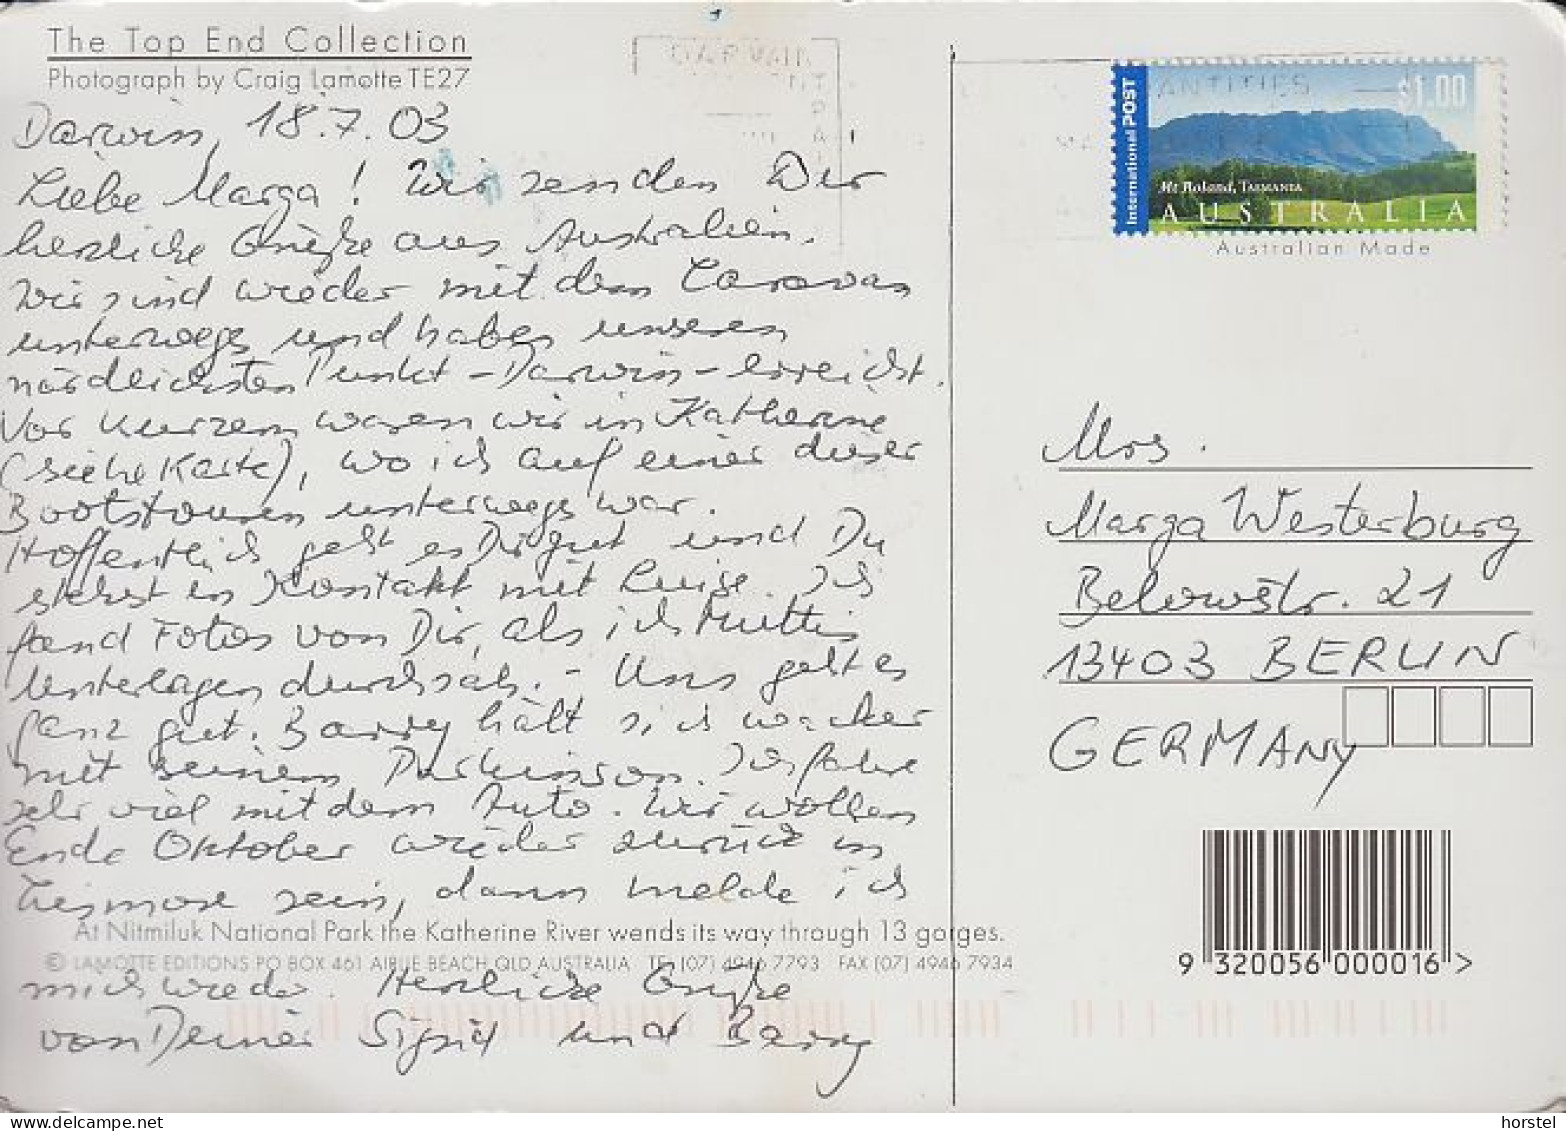 The Top End Collection
Photograph by Craig Lamotte TE27
Darwin, 18.7.03
Liebe Marga! Wir senden Dir
herzliche Grüße aus Australien.
Wir sind wieder mit dem Caravan
unterwegs und haben unseren
nördlichsten Punkt - Darwin - erreicht.
Vor kurzem waren wir in Katherine
(siehe Karte), wo ich auf einer dieser
Bootstouren unterwegs war.
Hoffentlich geht es Dir gut und Du
stehst in Kontakt mit Luise. Ich
fand Fotos von Dir, als ich Muttis
Unterlagen durchsah. - Uns geht es
ganz gut. Barry hält sich wacker
mit seinem Parkinson. Ich fahre
sehr viel mit dem Auto. Wir wollen
Ende Oktober wieder zurück in
Lismore sein, dann melde ich
At Nitmiluk National Park the Katherine River wends its way through 13 gorges.
© LAMOTTE EDITIONS PO BOX 461 AIRLIE BEACH QLD AUSTRALIA TEL (07) 4946 7793 FAX (07) 4946 7934
mich wieder. Herzliche Grüße
von Deiner Sigrid und Barry
DARWIN
ANTITIES
International POST
$1.00
Mt Roland, TASMANIA
AUSTRALIA
Australian Made
Mrs.
Marga Westerburg
Belowstr. 21
13403 BERLIN
GERMANY
9 320056 000016 >
horstel